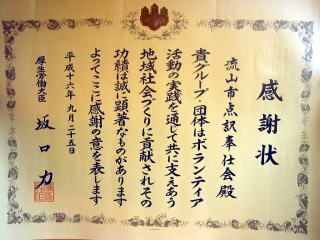 感謝状
流山市点訳奉仕会殿
貴グループ・団体はボランティア
活動の実践を通して共に支えあう
地域社会づくりに貢献されその
功績は誠に顕著なものがあります
よってここに感謝の意を表します
平成十六年九月二十五日
厚生労働大臣 坂口力